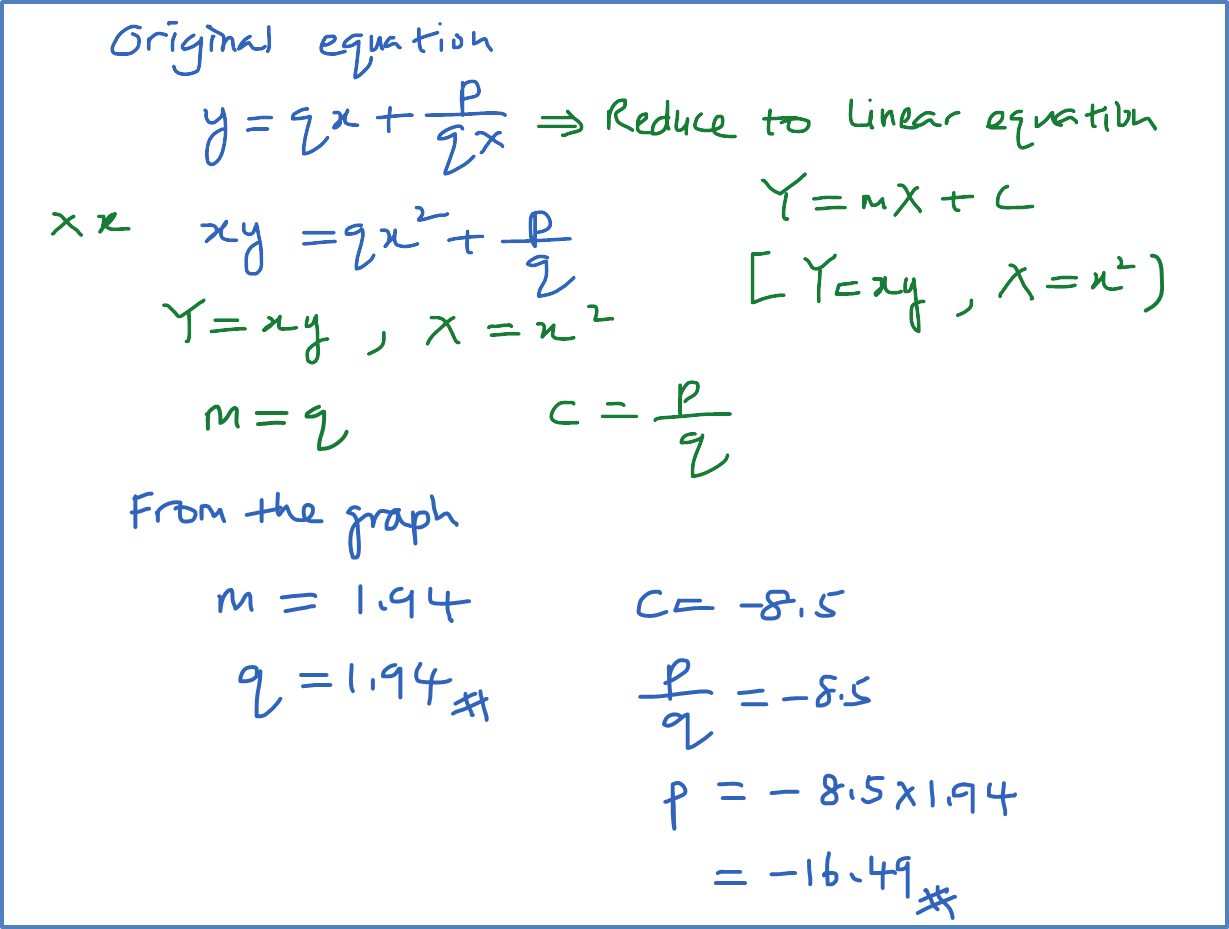 Original equation
y = qx + p/(qx) ⇒ Reduce to linear equation
Y = mX + C
× x xy = qx² + p/q
[Y = xy, X = x²)
Y = xy , X = x²
m = q C = p/q
From the graph
m = 1.94 C = -8.5
q = 1.94 # p/q = -8.5
p = -8.5 × 1.94
= -16.49 #